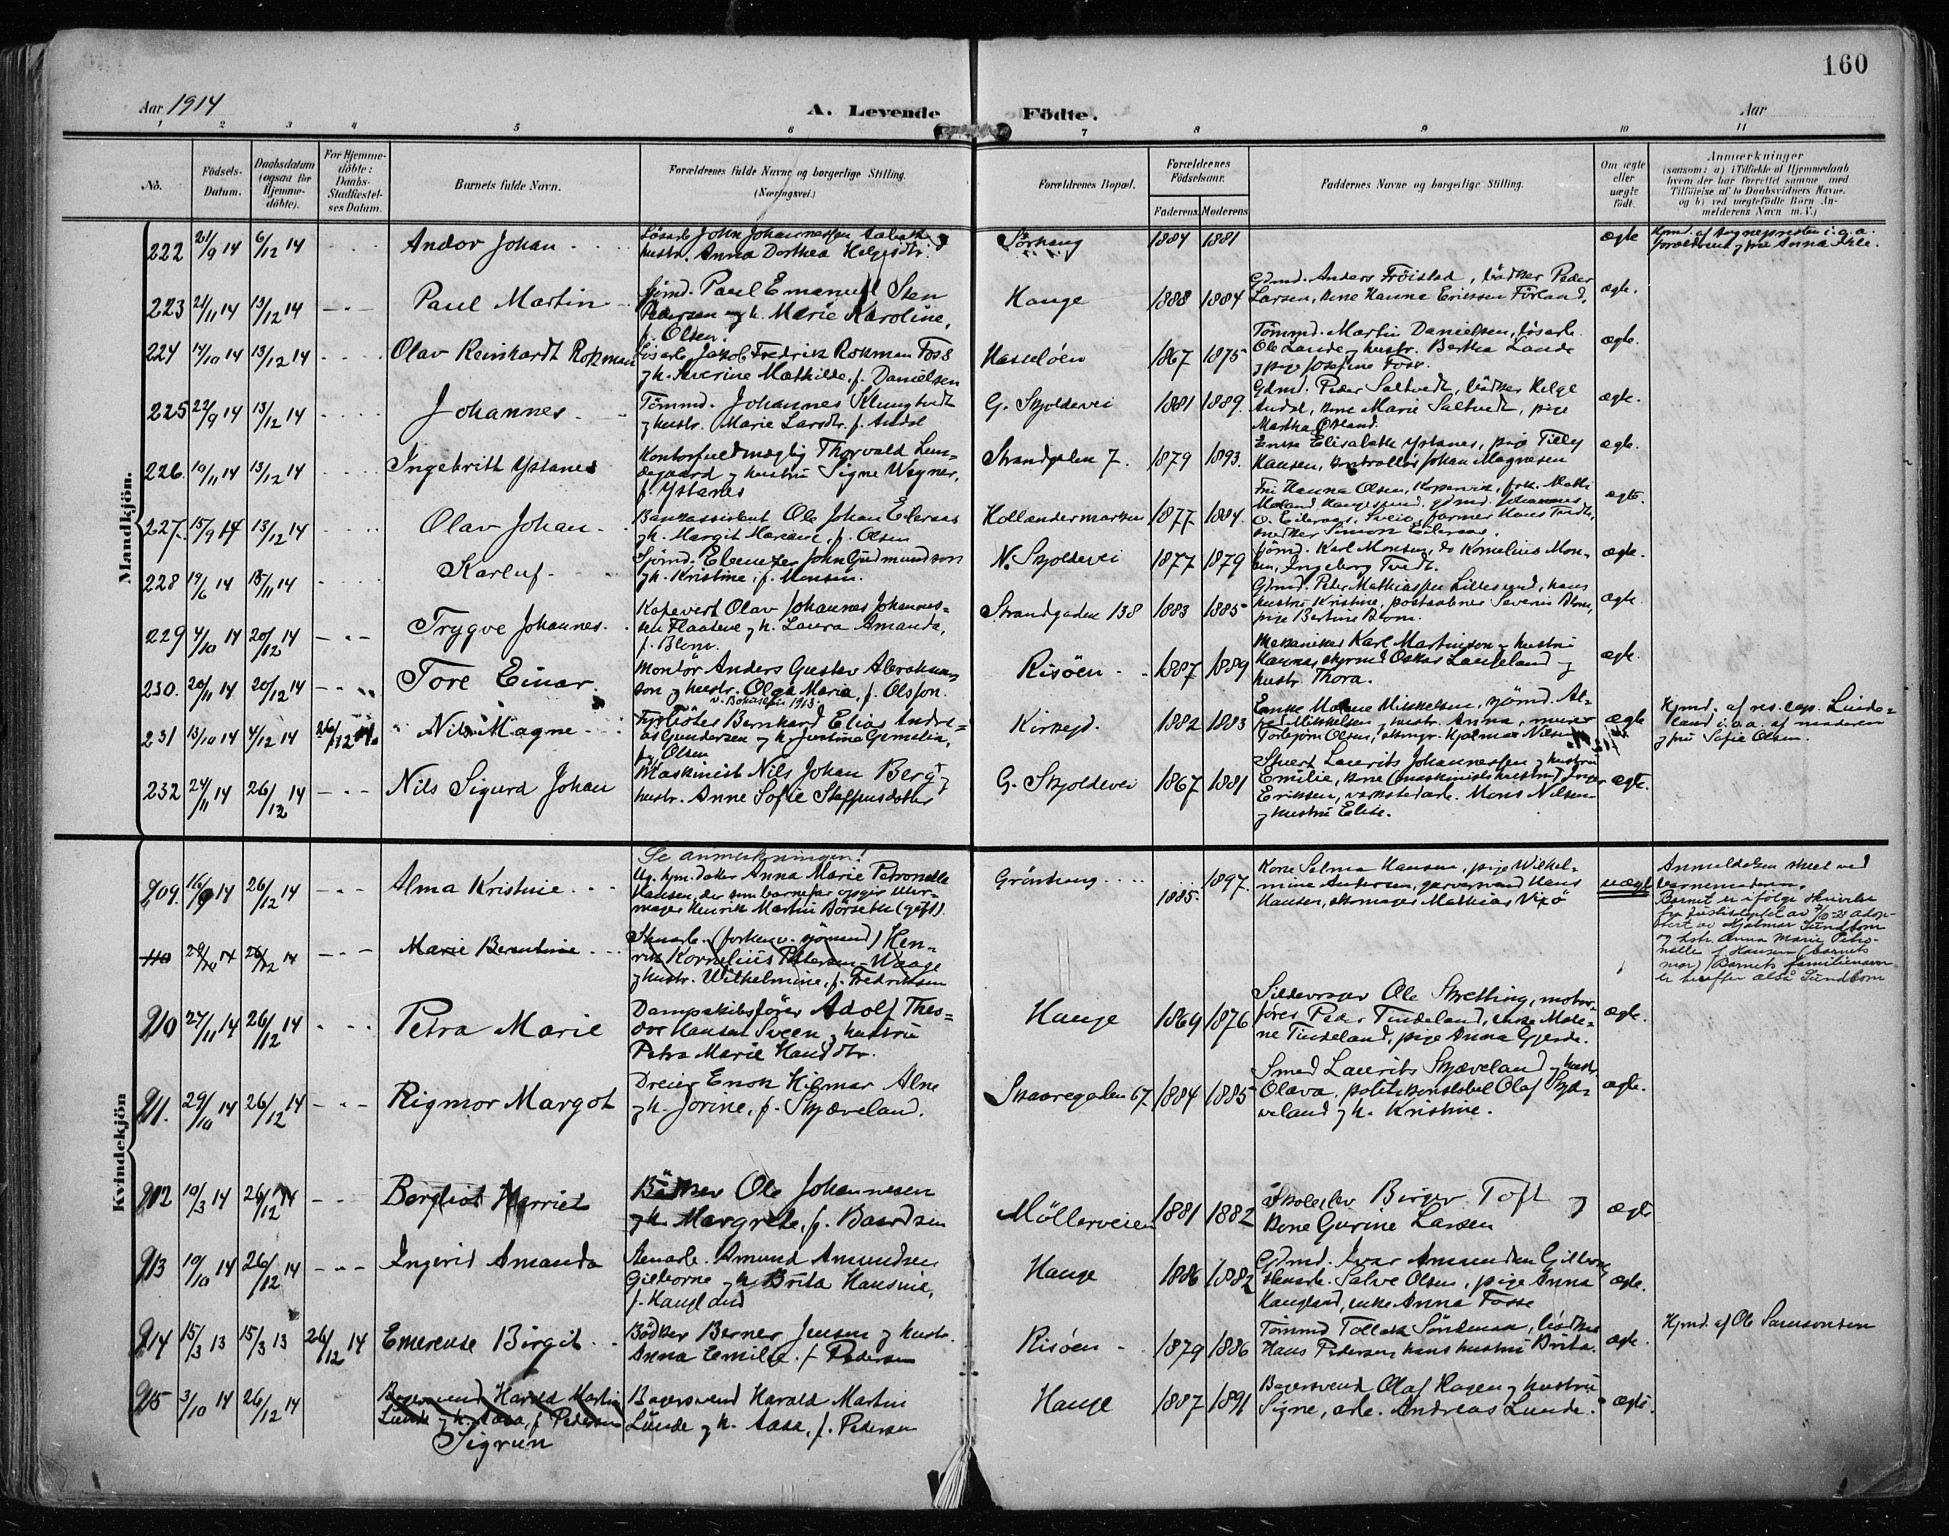 160
Aar 1914
A. Levende
Födte.
Aar
1 2 3 4 5 6 7 8 9 10 11
No.
Födsels-
Datum.
Daabsdatum
(ogsaa for
Hjemme-
döbte).
For Hjemme-
döbte:
Daabs-
Stadfæstel-
ses Datum.
Barnets fulde Navn.
Forældrenes fulde Navne og borgerlige Stilling.
(Næringsvei.)
Forældrenes Bopæl.
Forældrenes
Födselsaar.
Faderens Moderens
Faddernes Navne og borgerlige Stilling.
Om ægte
eller
uægte
födt.
Anmærkninger
(saasom: a) i Tilfælde af Hjemmedaab
hvem der har forrettet samme med
Tilföielse af to Daabsvidners Navne.
og b) ved uægtefödte Börn An-
melderens Navn m. V.)
Mandkjön.
222 21/9 14 6/12 14 Andor Johan
Løsarb. John Johannessen Aabak
hustr. Anna Dorthea Helgesdtr.
Sørhaug 1884 1881 ægte
Hjmd. af sognepresten i. o. a.
223 21/11 14 13/12 14 Paul Martin
Sjømd. Paul Emanuel Sten
Pedersen og h. Marie Karoline,
f. Olsen.
Hauge 1888 1884
Gdmd. Anders Frøistad, bødker Peder
Larsen, kone Hanna Eriksen Førland,
ægte.
224 14/10 14 13/12 14 Olav Reinhardt Rokman
Løsarb. Jakob Fredrik Rokman Foss
og h. Severine Mathilde, f. Danielsen
Hasseløen 1867 1875
Tømmd. Martin Danielsen, løsarb.
Ole Lande og hustr. Bertha Lande
og pige Josefine Foss.
ægte.
225 22/9 14 13/12 14 Johannes
Tømmd. Johannes Klungtvedt
og hustr. Marie Larsdtr. f. Andal
G. Skjoldevei 1881 1889.
Gdmd. Peder Saltvedt, bødker Helge
Andal, kone Marie Saltvedt, pige
Martha Østand.
ægte.
226. 10/11 14 13/12 14 Ingebrith Ystanes
Kontorfuldmægtig Thorvald Lun-
degaard og hustru Signe Wagner,
f. Ystanes
Strandgaden 7. 1879 1893.
Enke Elisabeth Ystanes, pige Tilly
Hansen, kontrollør Johan Magnesen
ægte.
227. 15/9 14 13/12 14 Olav Johan
Bankassistent Ole Johan Eileraas
og h. Margit Mariane, f. Olsen
Hollændermarken 1877 1884.
Fru Hanna Olsen, Kopervik, frk. Math.
Moland Haugesund, gdmd. Johannes
O. Eileraas, Sveio, farmer Hans Tvedt,
snedker Simon Eileraas.
ægte
228 19/6 14 15/11 14 Karluf
Sjømd. Ebenezer John Gudmundson
og h. Kristine, f. Monsen.
N. Skjoldevei 1877 1879
Sjømd. Karl Monsen, do Kornelius Mon-
sen, Ingeborg Tvedt.
ægte
229 4/10 14 20/12 14 Trygve Johannes
Kapevert Olav Johannes Johannes-
sen Flaateve og h. Laura Amanda,
f. Blom.
Strandgaden 138 1883 1885
Gdmd. Peder Mathiassen Lillesund, hans
hustru Kristine, postaabner Severin Blom,
pige Bertine Blom.
ægte.
230. 20/11 14 20/12 14 Tore Einar
Montör Anders Gustav Abraham-
son og hustr. Olga Maria, f. Olsson.
Risöen 1887 1889
Mekaniker Karl Martinson og hustru
Oskar Langeland og
hustr. Thora.
ægte.
231 13/10 14 4/12 14 26/12 14. Nils Magne
Fyrbøter Bernhard Elias Andre-
as Gundersen og h. Justine Cornelia,
f. Olsen
Kirkegd. 1882 1883
Enke Malene Mikkelsen, sjømd. Al-
fred Mikkelsen og hustr. Anna, murer
Torbjørn Olsen, Hjalmar Nilsen
ægte
Hjmd. af res. cap. Linde-
land i. o. a. af moderen
og fru Sofie Olsen.
232 24/11 14 26/12 14 Nils Sigurd Johan
Maskinist Nils Johan Berg og
hustr. Anne Sofie Steffensdatter
G. Skjoldevei 1867 1881
Stuert Laurits Johannessen og hustru
Emilie, kone (maskinists hustru) Inger
Eriksen, verkstedarb. Mons Nilsen
og hustru Elise.
ægte.
Kvindekjön
209. 16/9 14 26/12 14 Alma Kristine
Se anmerkningen!
Ug. hjm.dater Anna Marie Petronelle
Hansen, der som barnefar opgir Uhr-
mager Henrik Martin Børseth (gift).
Grönhaug 1885. 1897.
Kone Selma Hansen, pige Wilhel-
mine Andersen, garversvend Hans
Hansen, skomager Mathias Vixø
uægte
Anmeldelsen skeet ved
barnemoderen.
Barnet er ifølge skrivelse
fra justisdeptet av adop-
tert av Hjalmar Sundbom
og hstr. Anna Marie Petro-
nelle f. Hansen (barnets
mor) Barnets familienavn
er herefter altså Sundbom
210 29/10 14 26/12 14 Marie Berentine
Stenarb. (forhenv. sjømand) Hen-
rik Kornelius Pettersen Waage
og hustr. Wilhelmine, f. Fredriksen
210 27/11 14 26/12 14 Petra Marie
Dampskibsfører Adolf Theo-
dor Hansen Sveen og hustru
Petra Marie Hansdtr.
Hauge 1869 1876
Sildevrager Ole Skretting, motor-
fører Peder Tindeland, enke Male-
ne Tindeland, pige Anna Gjerde.
ægte.
211. 29/10 14 26/12 14 Rigmor Margot
Dreier Enok Hilmar Alne
og h. Jorine, f. Skjæveland.
Skaaregaden 67 1884 1885
Smed Laurits Skjæveland og hustr.
Olava, politikonstabel Olaf Skjæ-
veland og h. Kristine.
ægte.
212 10/3 14 26/12 14 Bergliot Harriet
Bødker Ole Johannesen
og h. Margrete, f. Baardsen
Møllerveien 1881 1882
Birger Toft og
kone Gurine Larsen
ægte
213 10/10 14 26/12 14 Ingerid Amanda
Stenarb. Amund Amundsen
Gisborne og h. Brita Hansine,
f. Haugland
Hauge 1886 1882
Gdmd. Ivar Amundsen
Stenarb. Salve Olsen, pige Anna
Haugland, enke Anna Fosse
ægte.
214 15/3 13 15/3 13 26/12 14 Emerense Birgit
Bødker Berner Jensen og hustr.
Anna Emilie, f. Pedersen
Risøen 1879 1886
Tømmd Tollak Söndenaa, bødker
Hans Pedersen, hans hustru Brita.
ægte.
Hjmd. af Ole Samsonsen
215 3/10 14 26/12 14
Bagersvend Harald Martin
Lunde og h. Aasa, f. Pedersen
Sigrun
Bagersvend Harald Martin
Lunde og h. Aasa, f. Pedersen
Hauge 1887 1891
Bagersvend Olaf Hagen og hustru
Signe, arb. Andreas Lunde.
ægte.